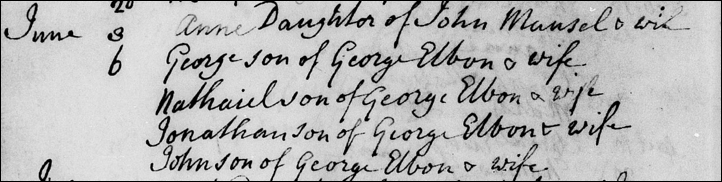 June 3 Anne Daughtor of John Mansel & wife
6 George son of George Elbon & wife
Nathaiel son of George Elbon & wife
Jonathan son of George Elbon & wife
John son of George Elbon & wife